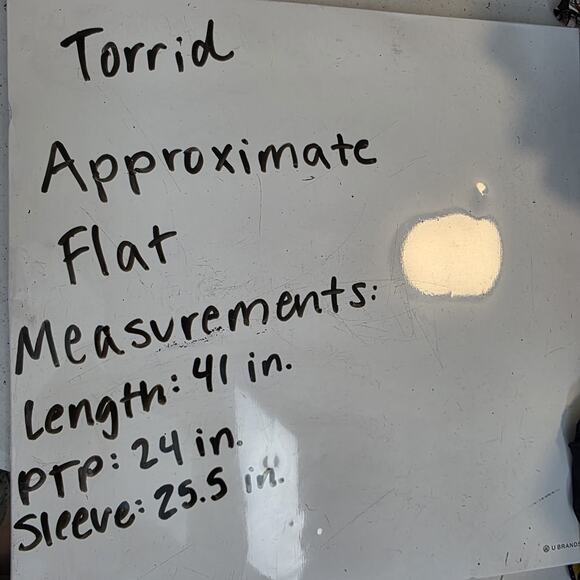 Torrid
Approximate
Flat
Measurements:
Length: 41 in.
PTP: 24 in.
Sleeve: 25.5 in.
U BRANDS